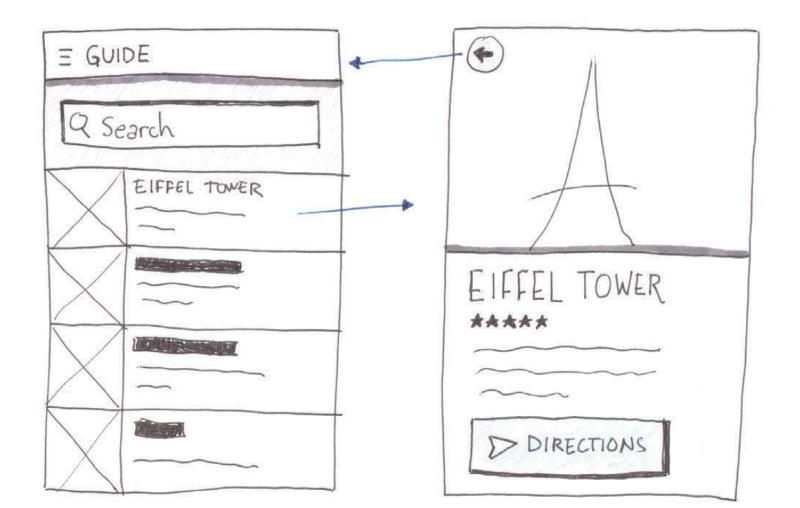 GUIDE
Search
EIFFEL TOWER
EIFFEL TOWER
DIRECTIONS